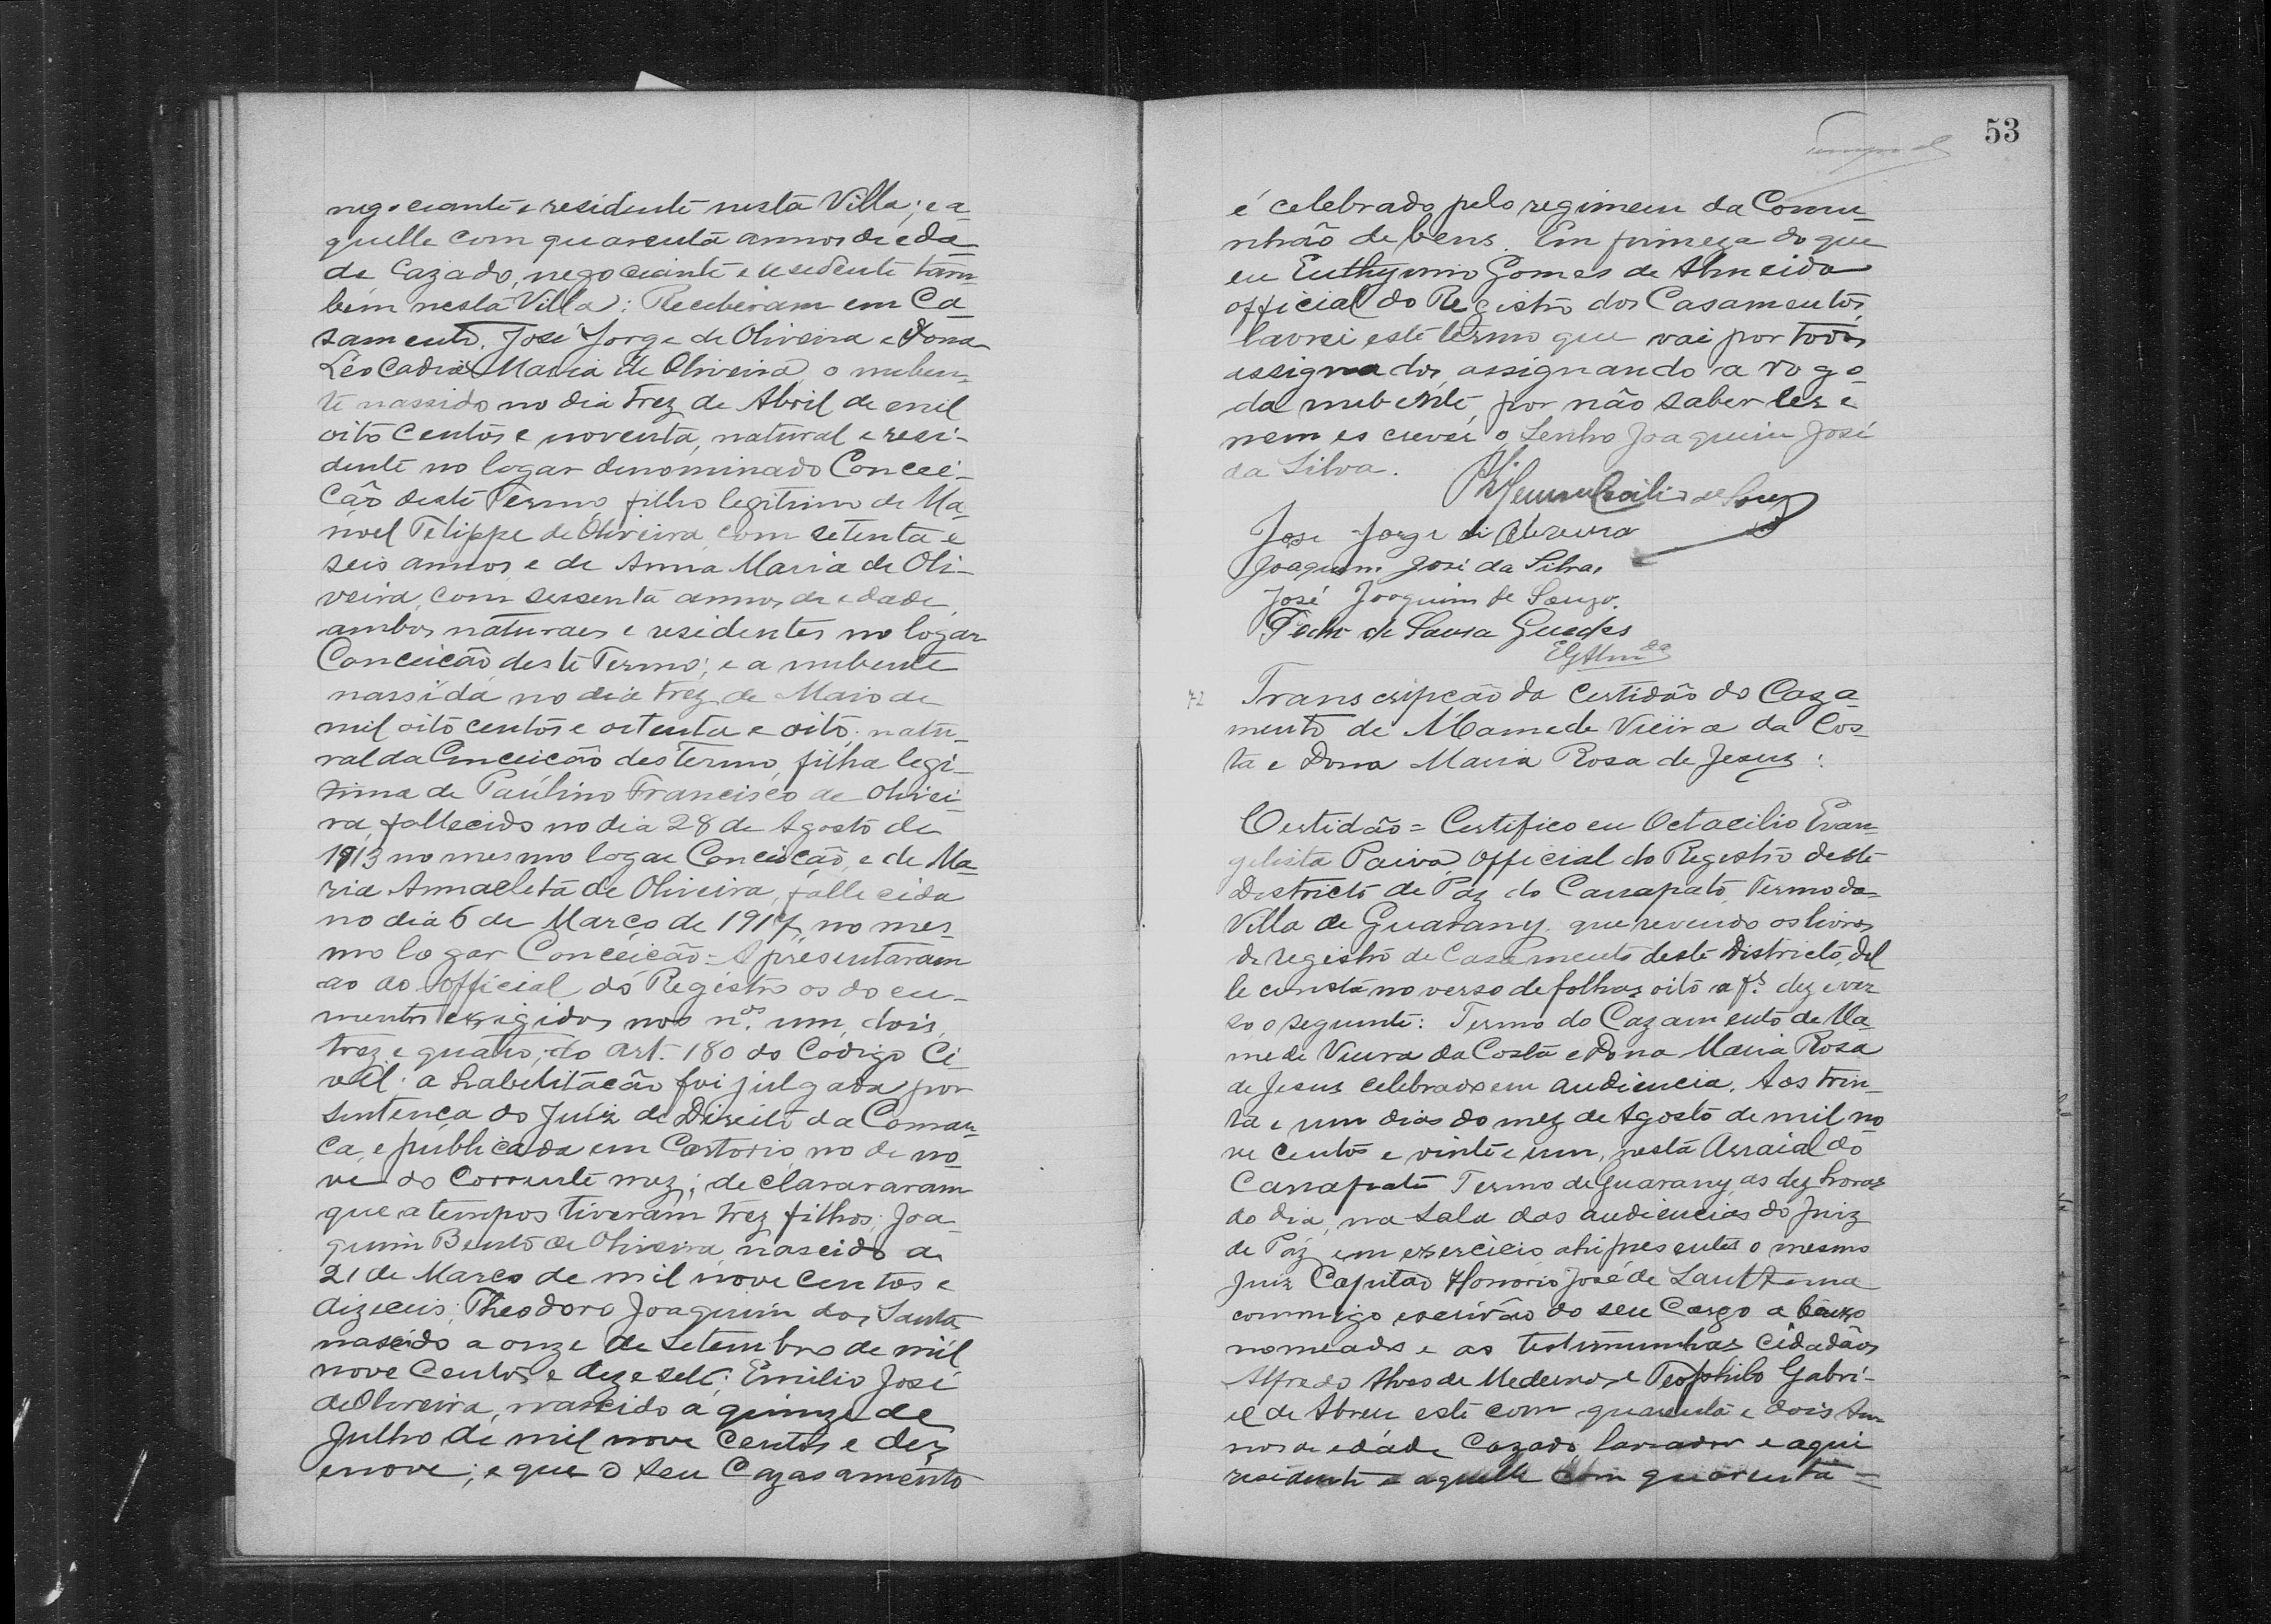 negociante e residente nesta Villa; e a-
quelle com quarenta annos de eda
de Cazado, negociante e residente tam-
bem nesta Villa: Receberam em Ca-
samento. José Jorge de Oliveira e Dona
Léocadia Maria de Oliveira, o nuben-
te nassido no dia trez de Abril de mil
oito centos e noventa, natural e resi-
dente no logar denominado Concei-
ção deste Termo, filho legitimo de Ma-
noel Felippe de Oliveira, com setenta e
seis annos, e de Anna Maria de Oli-
veira, com sessenta annos de edade,
ambos naturaes e residentes no logar
Conceição deste Termo; e a nubente
nassida no dia trez de Maio de
mil oito centos e oitenta e oito; natu-
ral da Conceicão des Termo, filha legi-
tima de Paulino Francisco de Olivei-
ra, fallecido no dia 28 de Agosto de
1913 no mesmo logar Conceição, e de Ma-
ria Annacleta de Oliveira, fallecida
no dia 6 de Março de 1917, no mes-
mo logar Conceição = Apresentaram
ao do Official do Registro os docu-
mentos exigidos nos nos. um, dois,
trez e quatro, do Art. 180 do Codigo Ci-
vil: a habilitacão foi julgada por
sentença do Juiz de Direito da Comar-
ca, e publicada em Cartorio, no de no-
ve do Corrente mez; declarararam
que a tempos tiveram trez filhos; Joa-
quim Bento de Oliveira, nascido a
21 de Março de mil nove centos e
dizeceis; Theodoro Joaquim dos Santos
nascido a onze de Setembro de mil
nove centos e dezesete; Emilio José
de Oliveira, nascido a quinze de
Julho de mil nove Centos e dez
enove; e que o seu Cazasamento
53
é celebrado pelo regimem da Comu-
nhão de bens. Em firmeza do que
eu Euthymio Gomes de Almeida
official do Registro dos Casamentos,
lavrei este termo que vai por todos
assignados, assignando a rogo
da nubente, por não saber ler e
nem escrever o Senho Joaquim José
da Silva.
Jose Jorge di Oliveira
Joaquim José da Silva,
José Joaquim de Souza.
Pedro de Sousa Guedes
EGAlmda
72 Transcripção da Certidão do Caza-
mento de Mamede Vieira da Cos-
ta e Dona Maria Rosa de Jesus:
Certidão = Certifico eu Octacilio Evan-
gelista Paiva, Official do Registro deste
Districto de Paz do Carrapato, Termo da
Villa de Guarany que revendo os livros
de registro de Casamento deste Districto, del
le consta no verso de folhas oito a fs. dez e ver
so o seguinte: Termo do Cazamento de Ma-
mede Vieira da Costa e Dona Maria Rosa
de Jesus celebrado em audiencia. Aos trin-
ta e um dias do mez de Agosto de mil no
ve centos e vinte e um, nesta Arraial do
Carrapato Termo de Guarany, as dez horas
do dia, na sala das audiencias do Juiz
de Paz em exercicio ahi presentes o mesmo
Juiz Capitão Honorio José de Sant'Anna
commigo escrivão do seu Cargo a baixo
nomeado e as testimunhas Cidadãos
Alfredo Alves de Mederos e Teophilo Gabri-
el de Abreu este com quarenta e dois An
nos de edade Cazado, lavrador e aqui
residente e aquelle com quarenta =